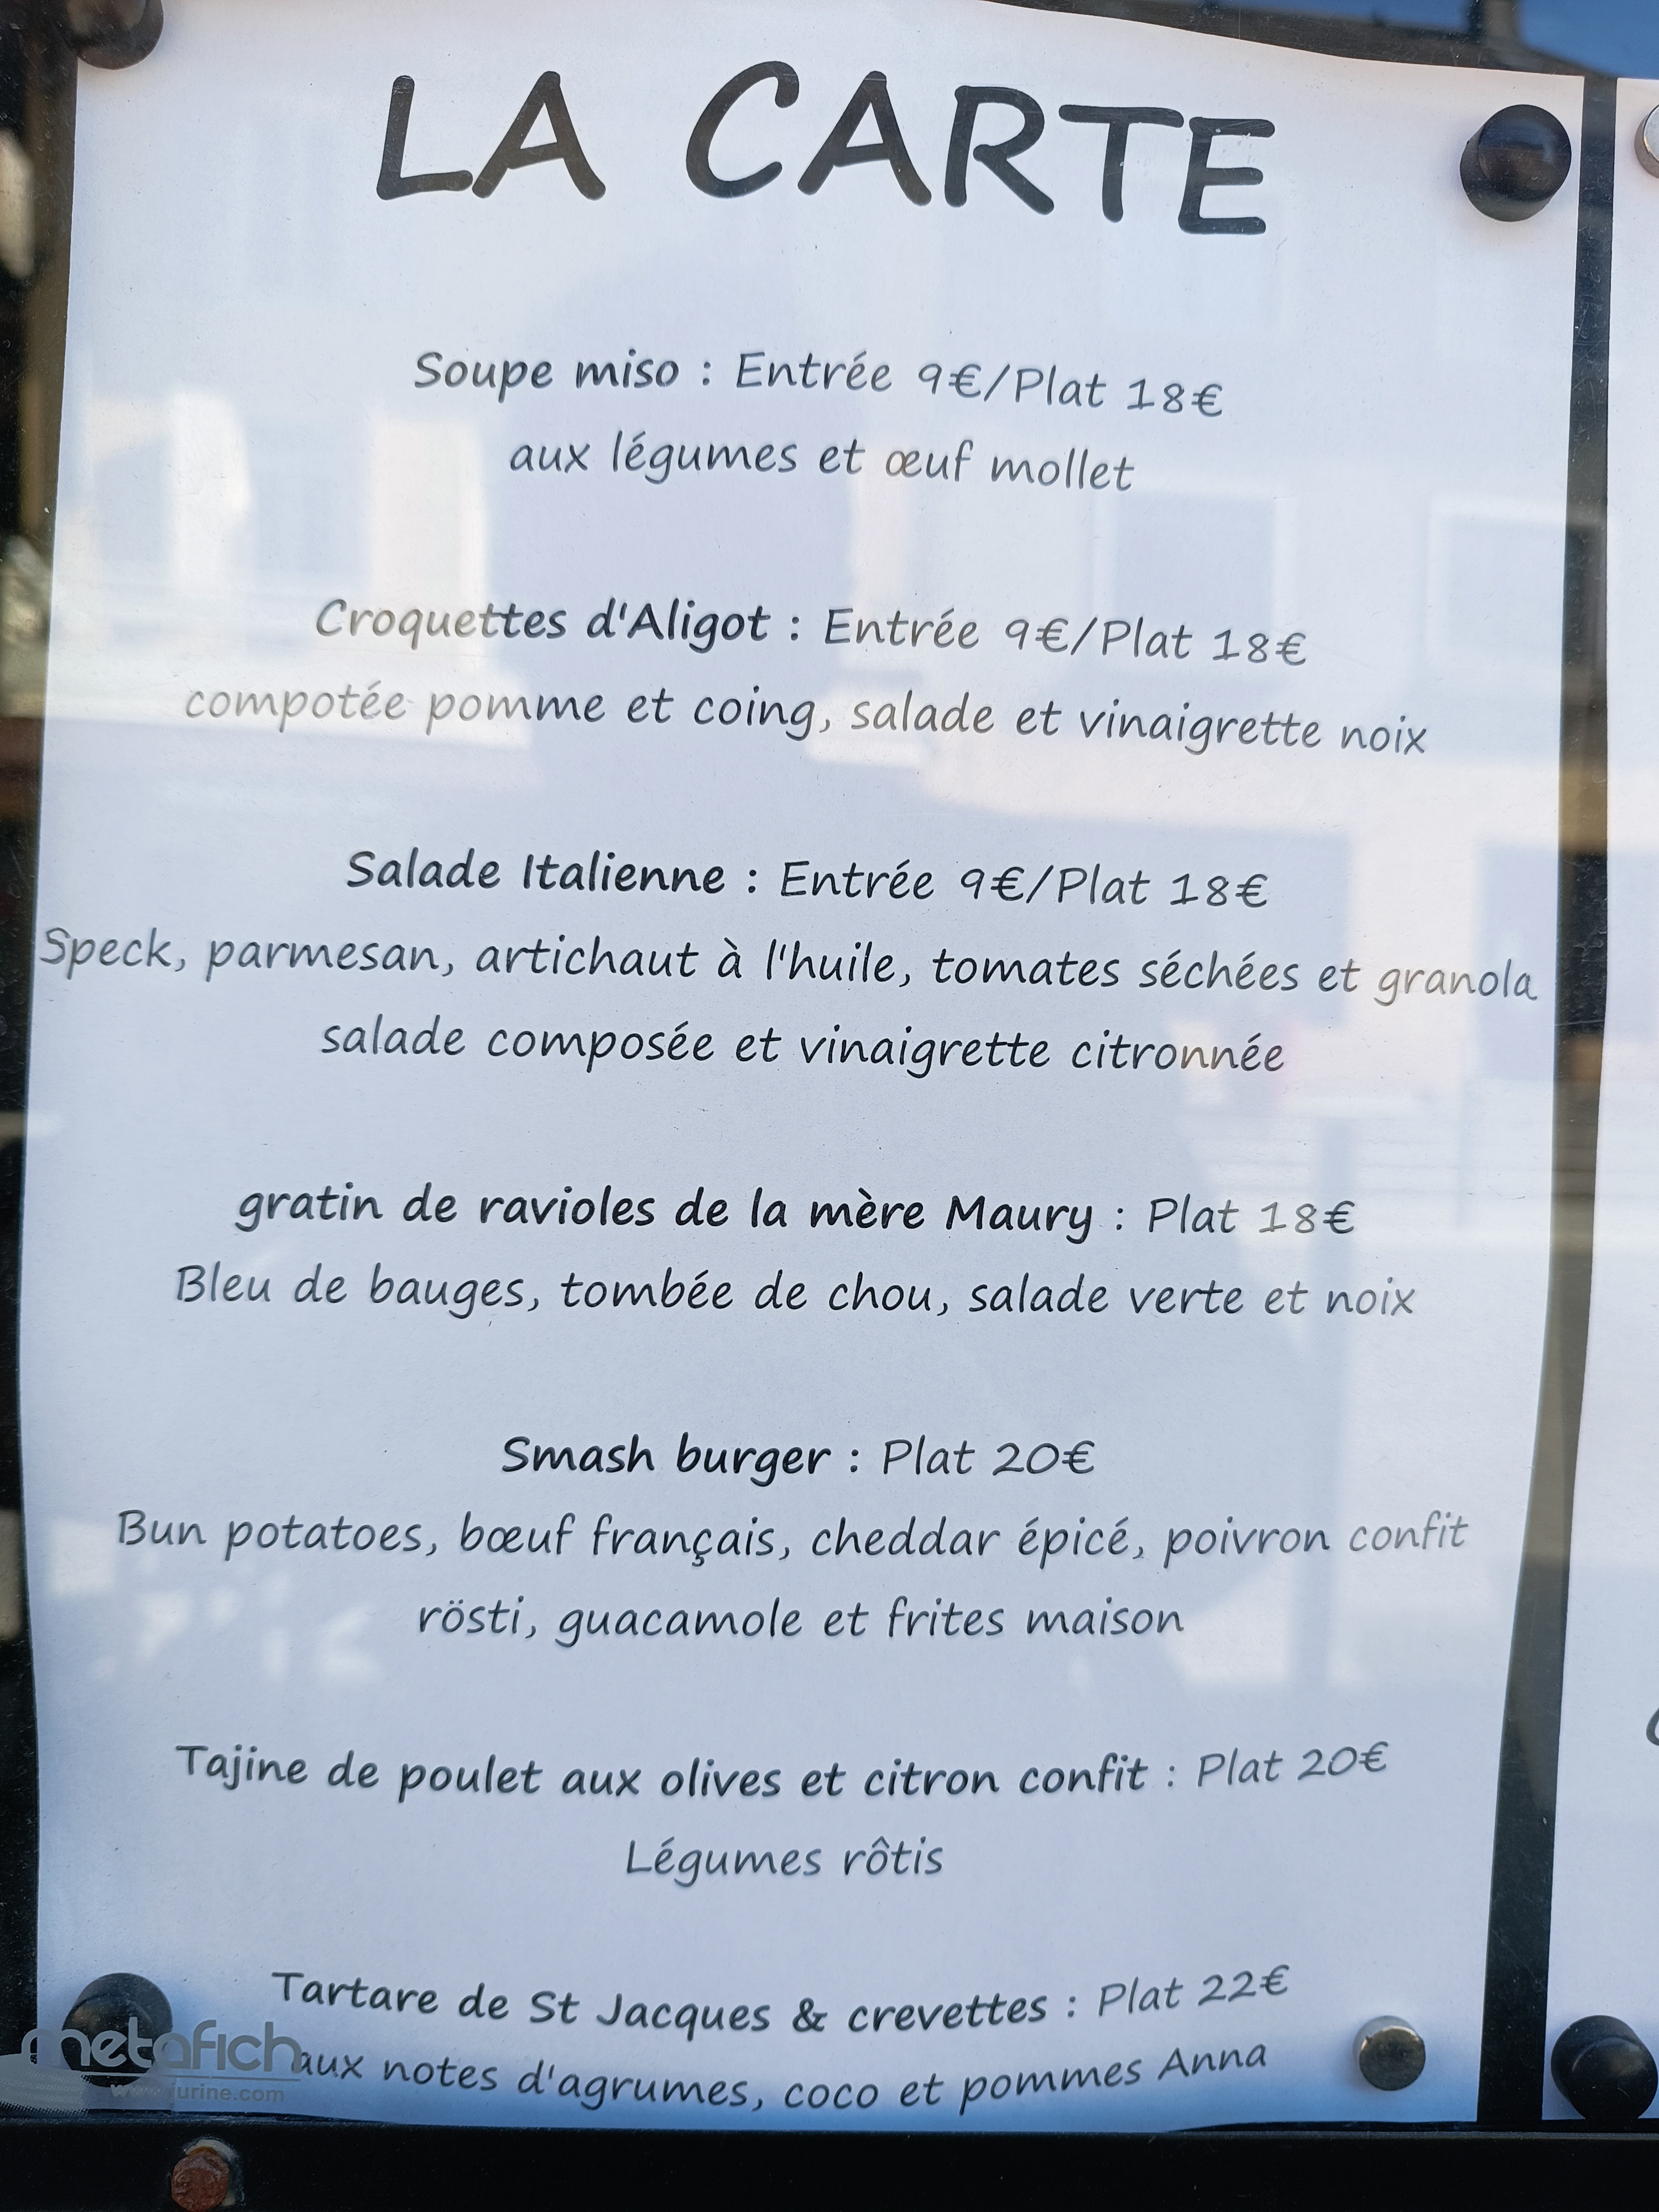 LA CARTE
Soupe miso : Entrée 9€/Plat 18€
aux légumes et œuf mollet
Croquettes d'Aligot : Entrée 9€/Plat 18€
compotée pomme et coing, salade et vinaigrette noix
Salade Italienne : Entrée 9€/Plat 18€
Speck, parmesan, artichaut à l'huile, tomates séchées et granola
salade composée et vinaigrette citronnée
gratin de ravioles de la mère Maury : Plat 18€
Bleu de bauges, tombée de chou, salade verte et noix
Smash burger : Plat 20€
Bun potatoes, bœuf français, cheddar épicé, poivron confit
rösti, guacamole et frites maison
Tajine de poulet aux olives et citron confit : Plat 20€
Légumes rôtis
Tartare de St Jacques & crevettes : Plat 22€
aux notes d'agrumes, coco et pommes Anna
metafich